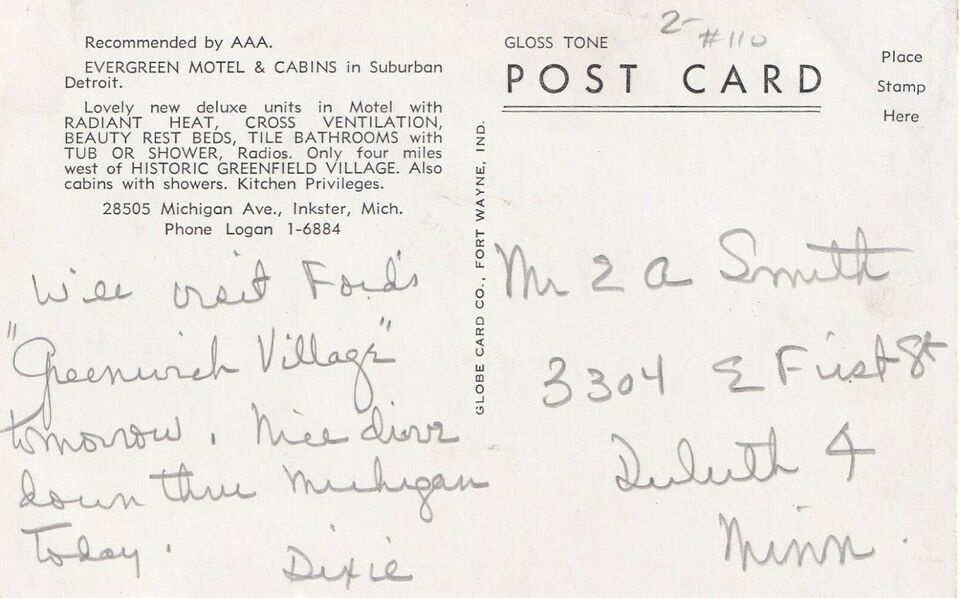 2-
#110
Recommended by AAA.
EVERGREEN MOTEL & CABINS in Suburban
Detroit.
Lovely new deluxe units in Motel with
RADIANT HEAT, CROSS VENTILATION,
BEAUTY REST BEDS, TILE BATHROOMS with
TUB OR SHOWER, Radios. Only four miles
west of HISTORIC GREENFIELD VILLAGE. Also
cabins with showers. Kitchen Privileges.
28505 Michigan Ave., Inkster, Mich.
Phone Logan 1-6884
Will visit Ford's
"Greenwich Village"
tomorrow. Nice drive
down thru Michigan
today.
Dixie
GLOBE CARD CO., FORT WAYNE, IND.
GLOSS TONE
POST CARD
Place
Stamp
Here
Mr E A Smith
3304 E First St
Duluth 4
Minn.